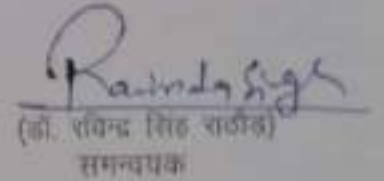 Ravinder Singh
(डॉ. रविन्द्र सिंह राठौड़)
समन्वयक